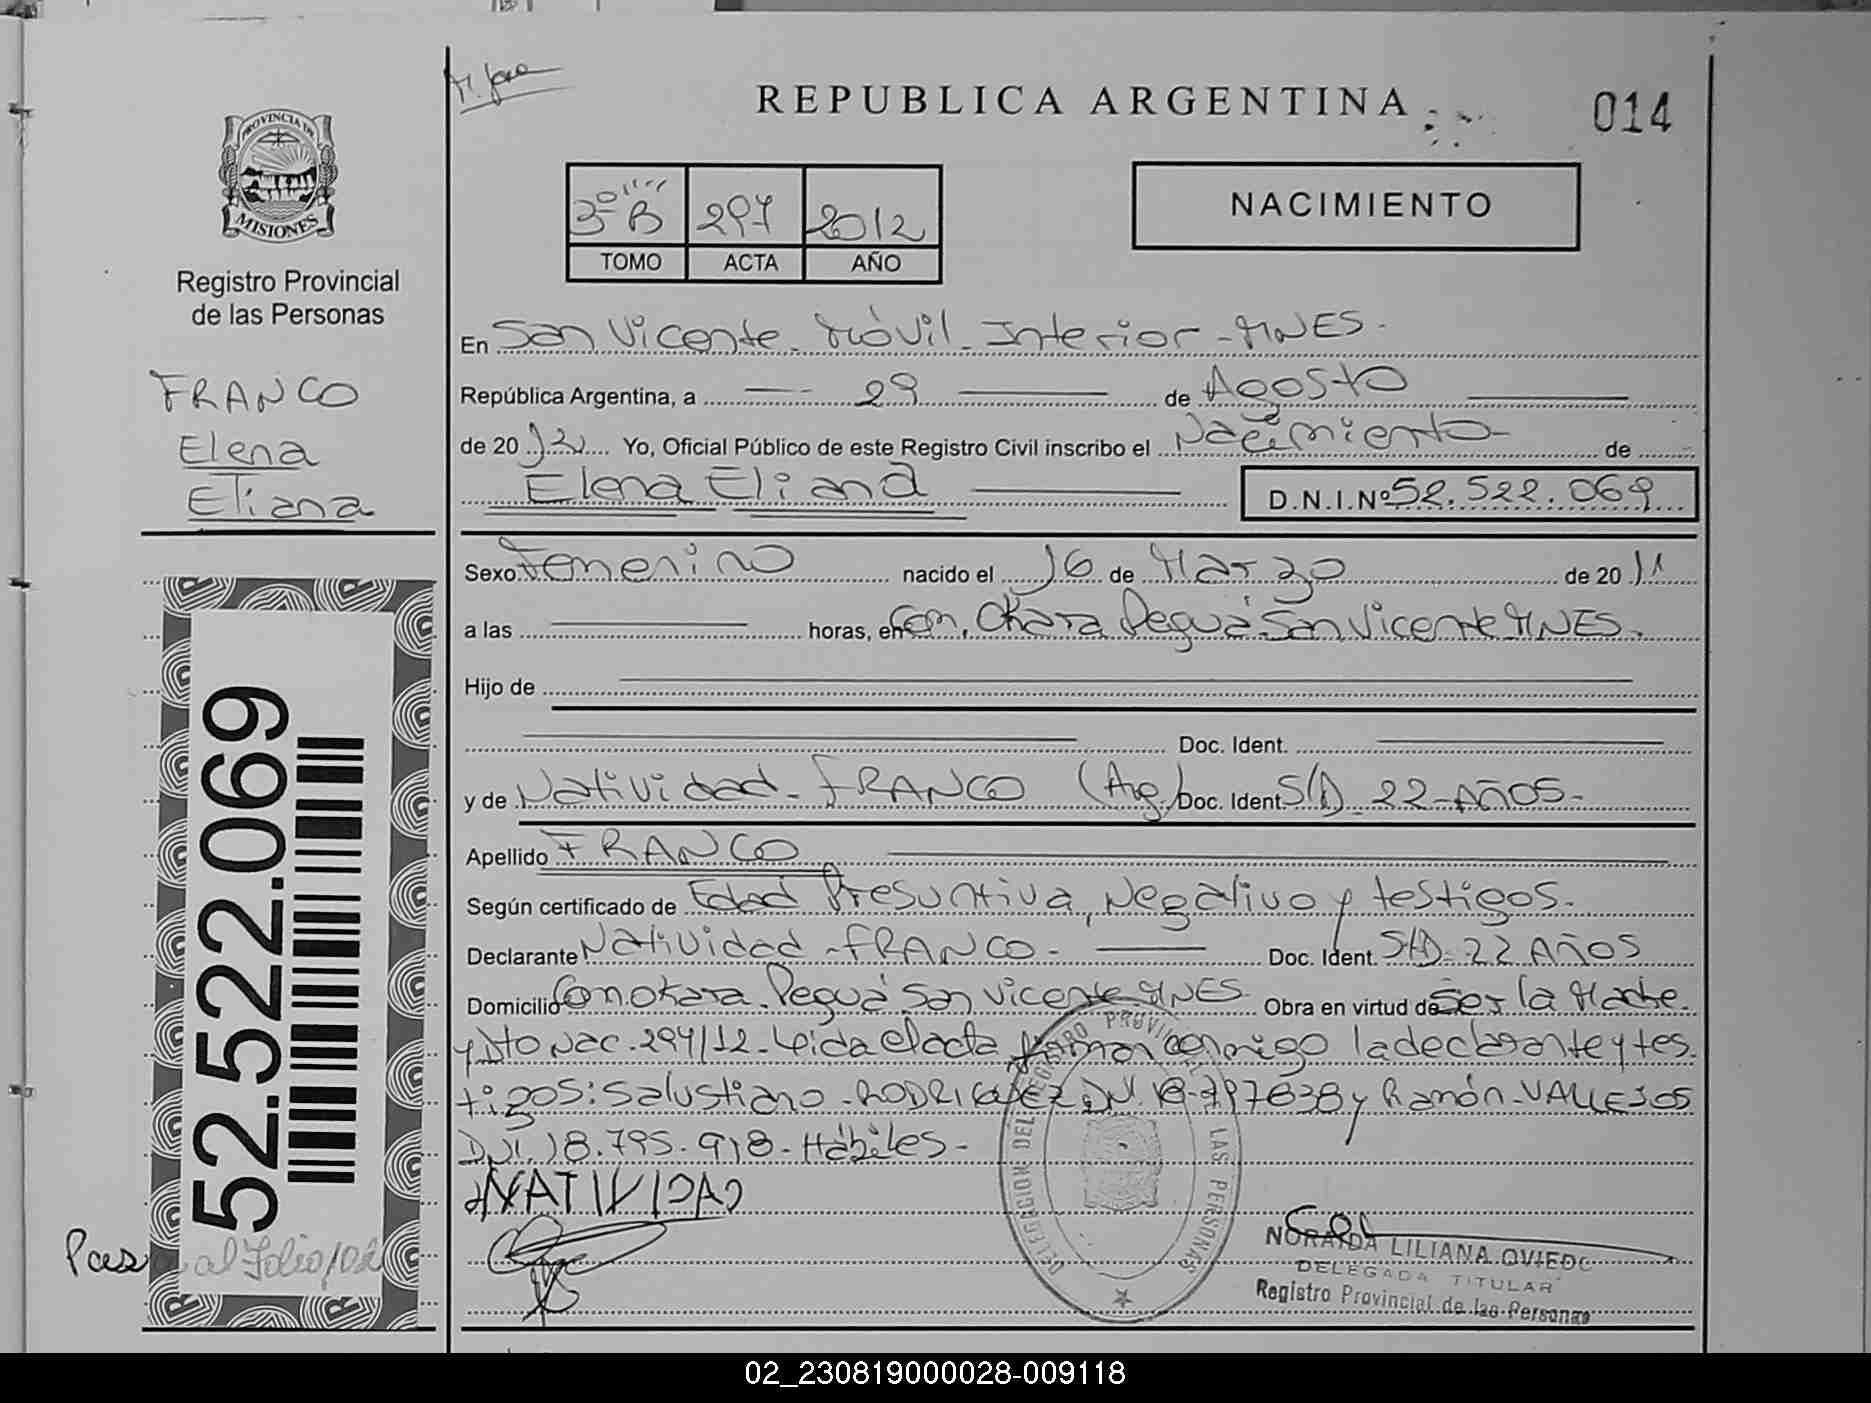 REPUBLICA ARGENTINA
014
PROVINCIA DE
MISIONES
Registro Provincial
de las Personas
3º B 297 2012
TOMO ACTA AÑO
NACIMIENTO
FRANCO
Elena
Eliana
En San Vicente - Móvil - Interior - MNES -
República Argentina, a 29 de Agosto
de 2012 Yo, Oficial Público de este Registro Civil inscribo el Nacimiento de
Elena Eliana D.N.I.Nº 52.522.069
Sexo Femenino nacido el 16 de Marzo de 2011
a las horas, en Com. Okara Peguá San Vicente MNES.
Hijo de
Doc. Ident.
y de Natividad - FRANCO (Arg.) Doc. Ident. S/D - 22 - AÑOS -
Apellido FRANCO
Según certificado de Edad Presuntiva, Negativo y testigos.
Declarante Natividad - FRANCO - Doc. Ident. S/D - 22 AÑOS
Domicilio Com. Okara Peguá San Vicente MNES Obra en virtud de Ser la Madre.
y Dto Nac. 294/12 - Leida el acta firman conmigo la declarante y tes
tigos: Salustiano - RODRIGUEZ DNI. 18-797838 y Ramón - VALLEJOS
DNI. 18.795.918 - Hábiles -
NATIVIDAD
DELEGACION DEL REGISTRO PROVINCIAL DE LAS PERSONAS
NORAIDA LILIANA OVIEDO
DELEGADA TITULAR
Registro Provincial de las Personas
52.522.069
Pasa al Folio/02
02_230819000028-009118